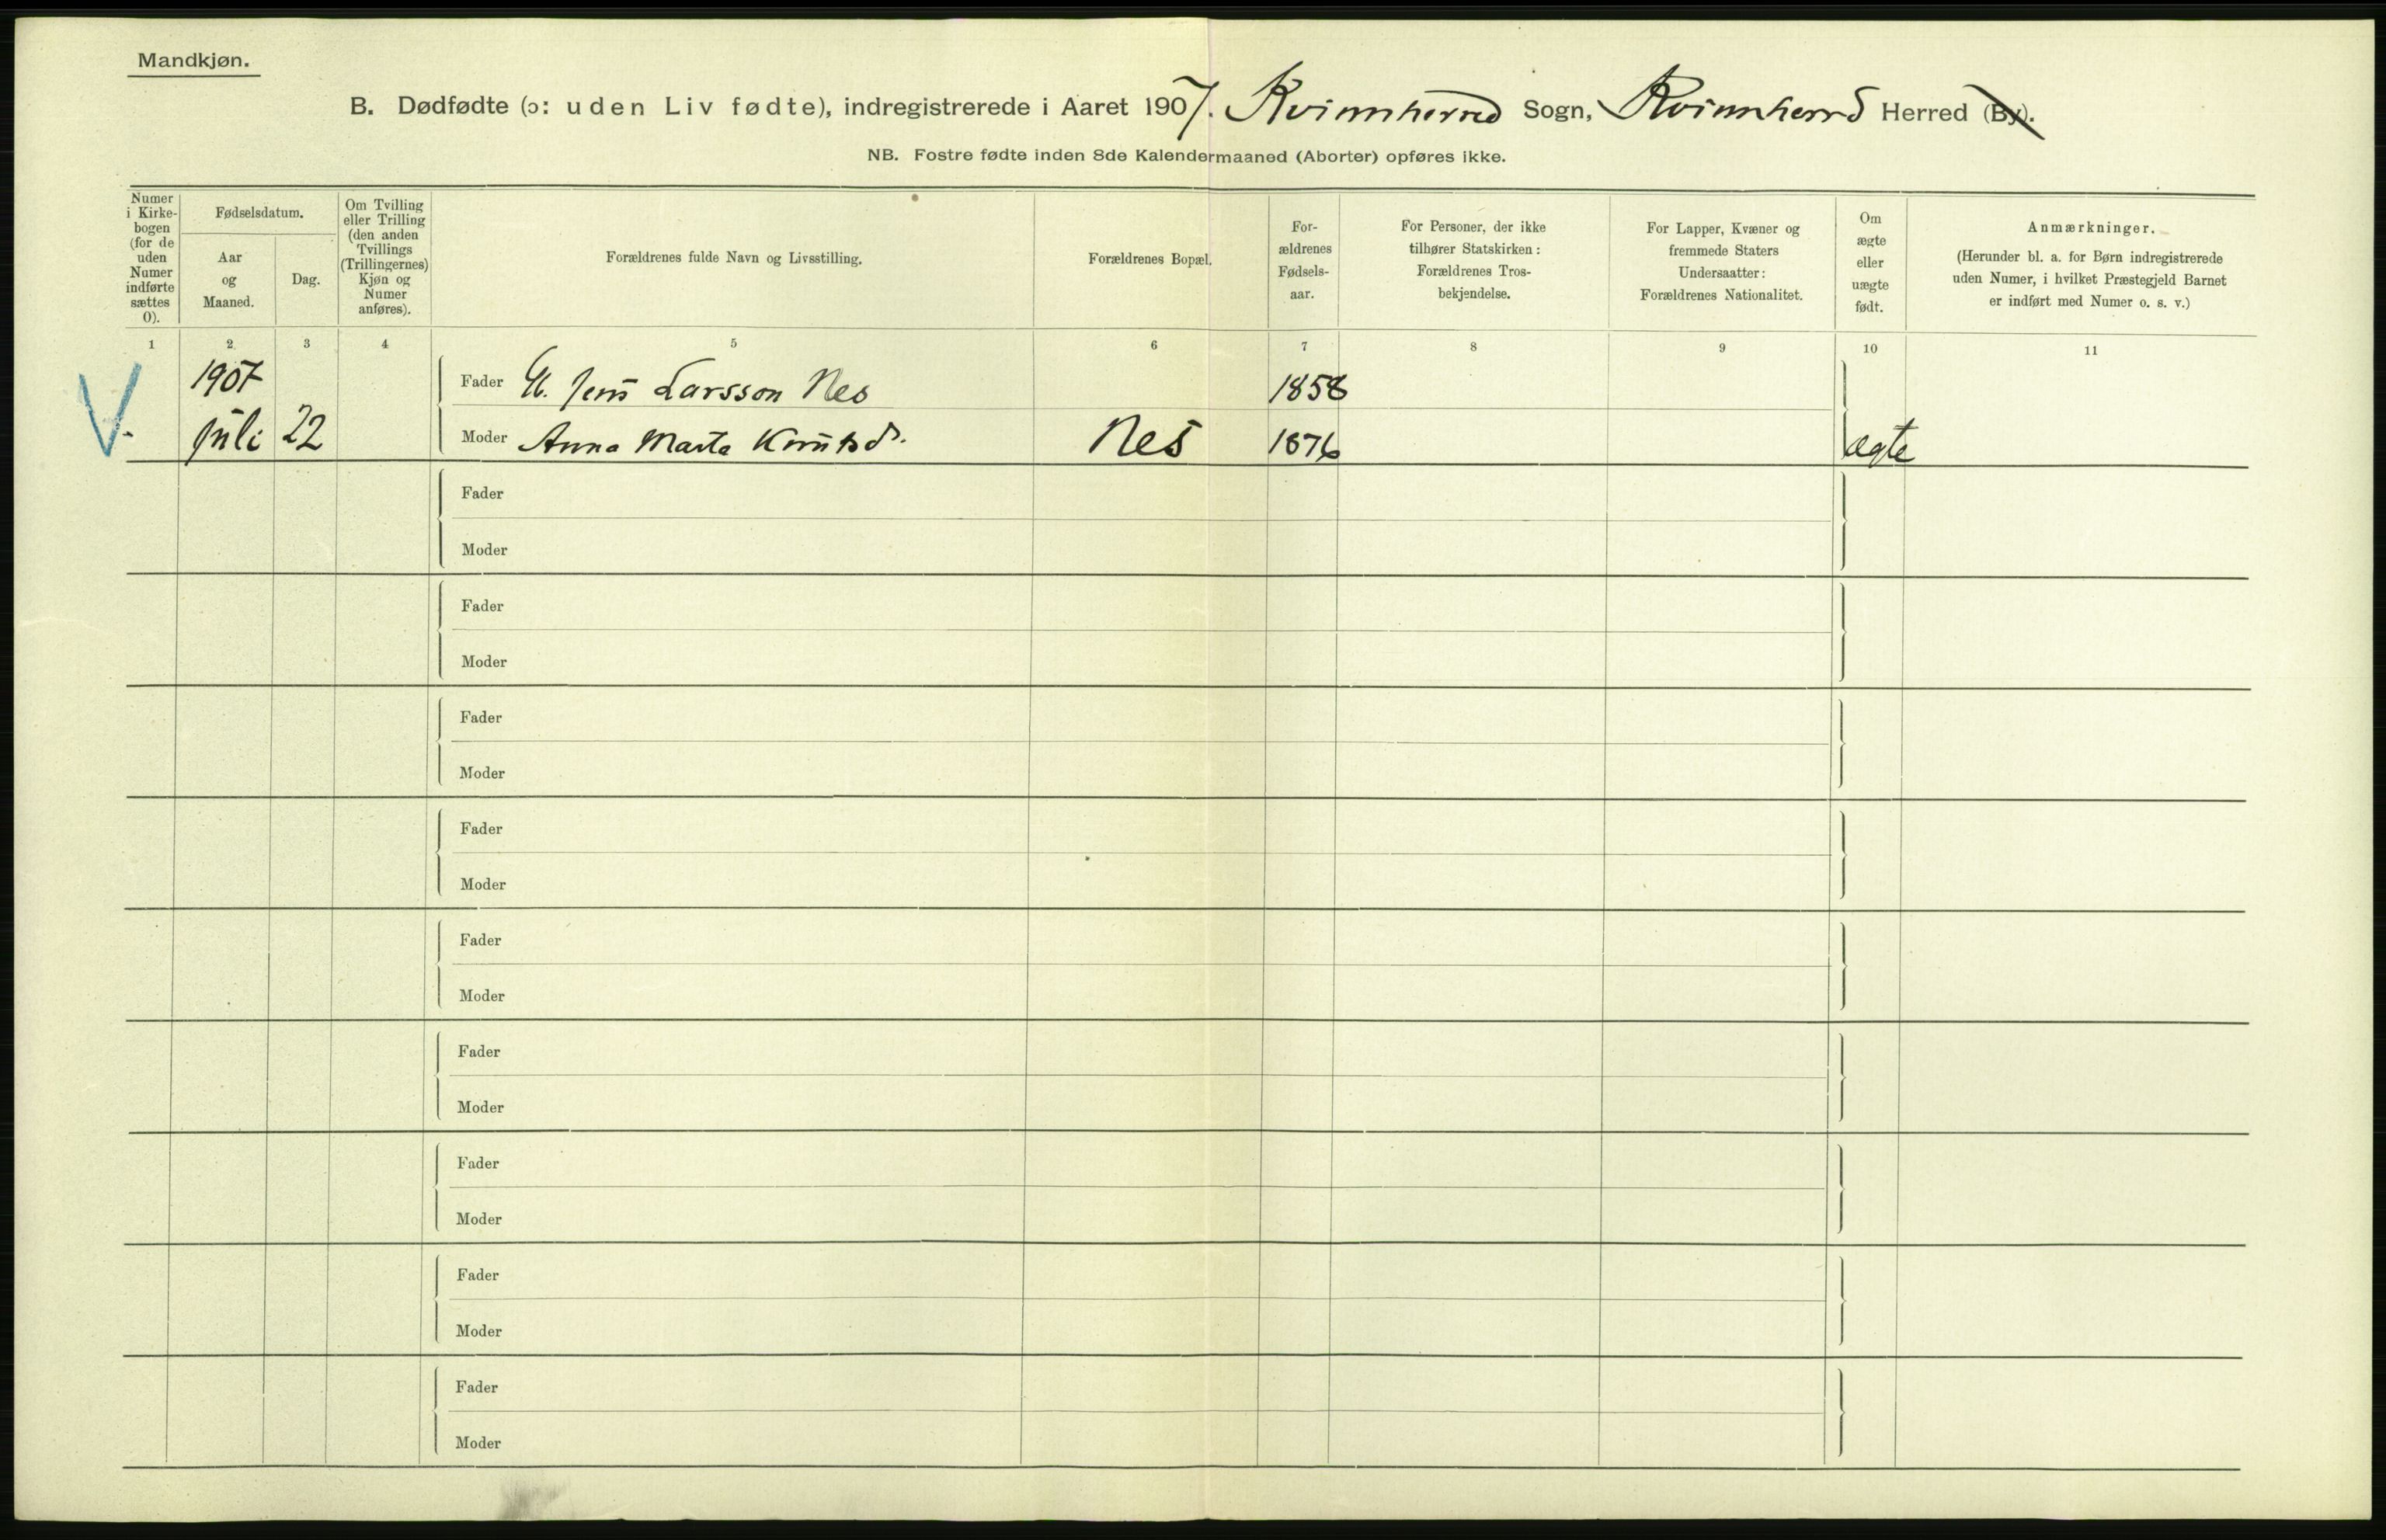 Mandkjøn.
B. Dødfødte (ɔ: uden Liv fødte), indregistrerede i Aaret 1907. Kvinnherred Sogn, Kvinnherred Herred (By).
NB. Fostre fødte inden 8de Kalendermaaned (Aborter) opføres ikke.
Numer i Kirke-bogen (for de uden Numer indførte sættes 0).
Fødselsdatum.
Aar og Maaned.
Dag.
Om Tvilling eller Trilling (den anden Tvillings (Trillingernes) Kjøn og Numer anføres).
Forældrenes fulde Navn og Livsstilling.
Forældrenes Bopæl.
For-ældrenes Fødsels-aar.
For Personer, der ikke tilhører Statskirken: Forældrenes Tros-bekjendelse.
For Lapper, Kvæner og fremmede Staters Undersaatter: Forældrenes Nationalitet.
Om ægte eller uægte født.
Anmærkninger.
(Herunder bl. a. for Børn indregistrerede uden Numer, i hvilket Præstegjeld Barnet er indført med Numer o. s. v.)
1 2 3 4 5 6 7 8 9 10 11
1907 Fader Jens Larsson Nes 1858
Juli 22 Moder Anna Marta Knutsd. Nes 1876 ægte
Fader
Moder
Fader
Moder
Fader
Moder
Fader
Moder
Fader
Moder
Fader
Moder
Fader
Moder
Fader
Moder
Fader
Moder